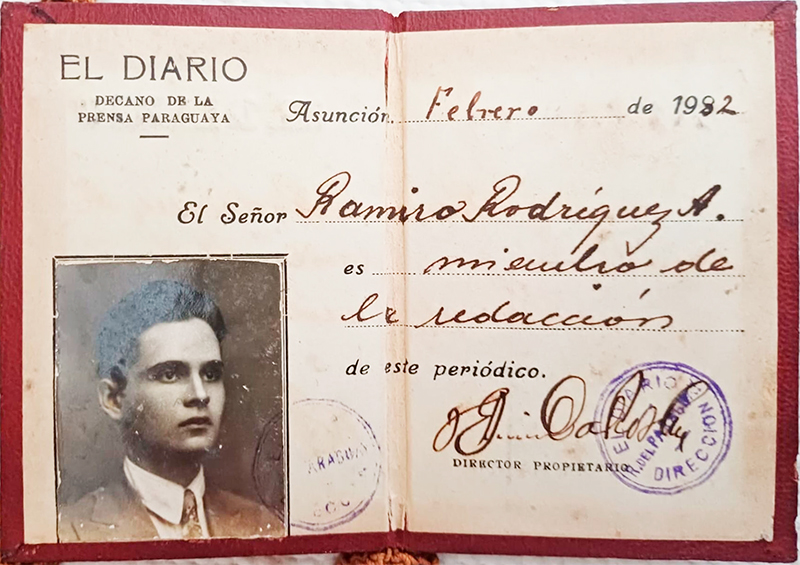 EL DIARIO
DECANO DE LA
PRENSA PARAGUAYA
Asunción, Febrero de 1932
El Señor Ramiro Rodríguez A.
es miembro de
la redacción
de este periódico.
DIRECTOR PROPIETARIO
EL DIARIO
R. DEL PARAGUAY
DIRECCIÓN